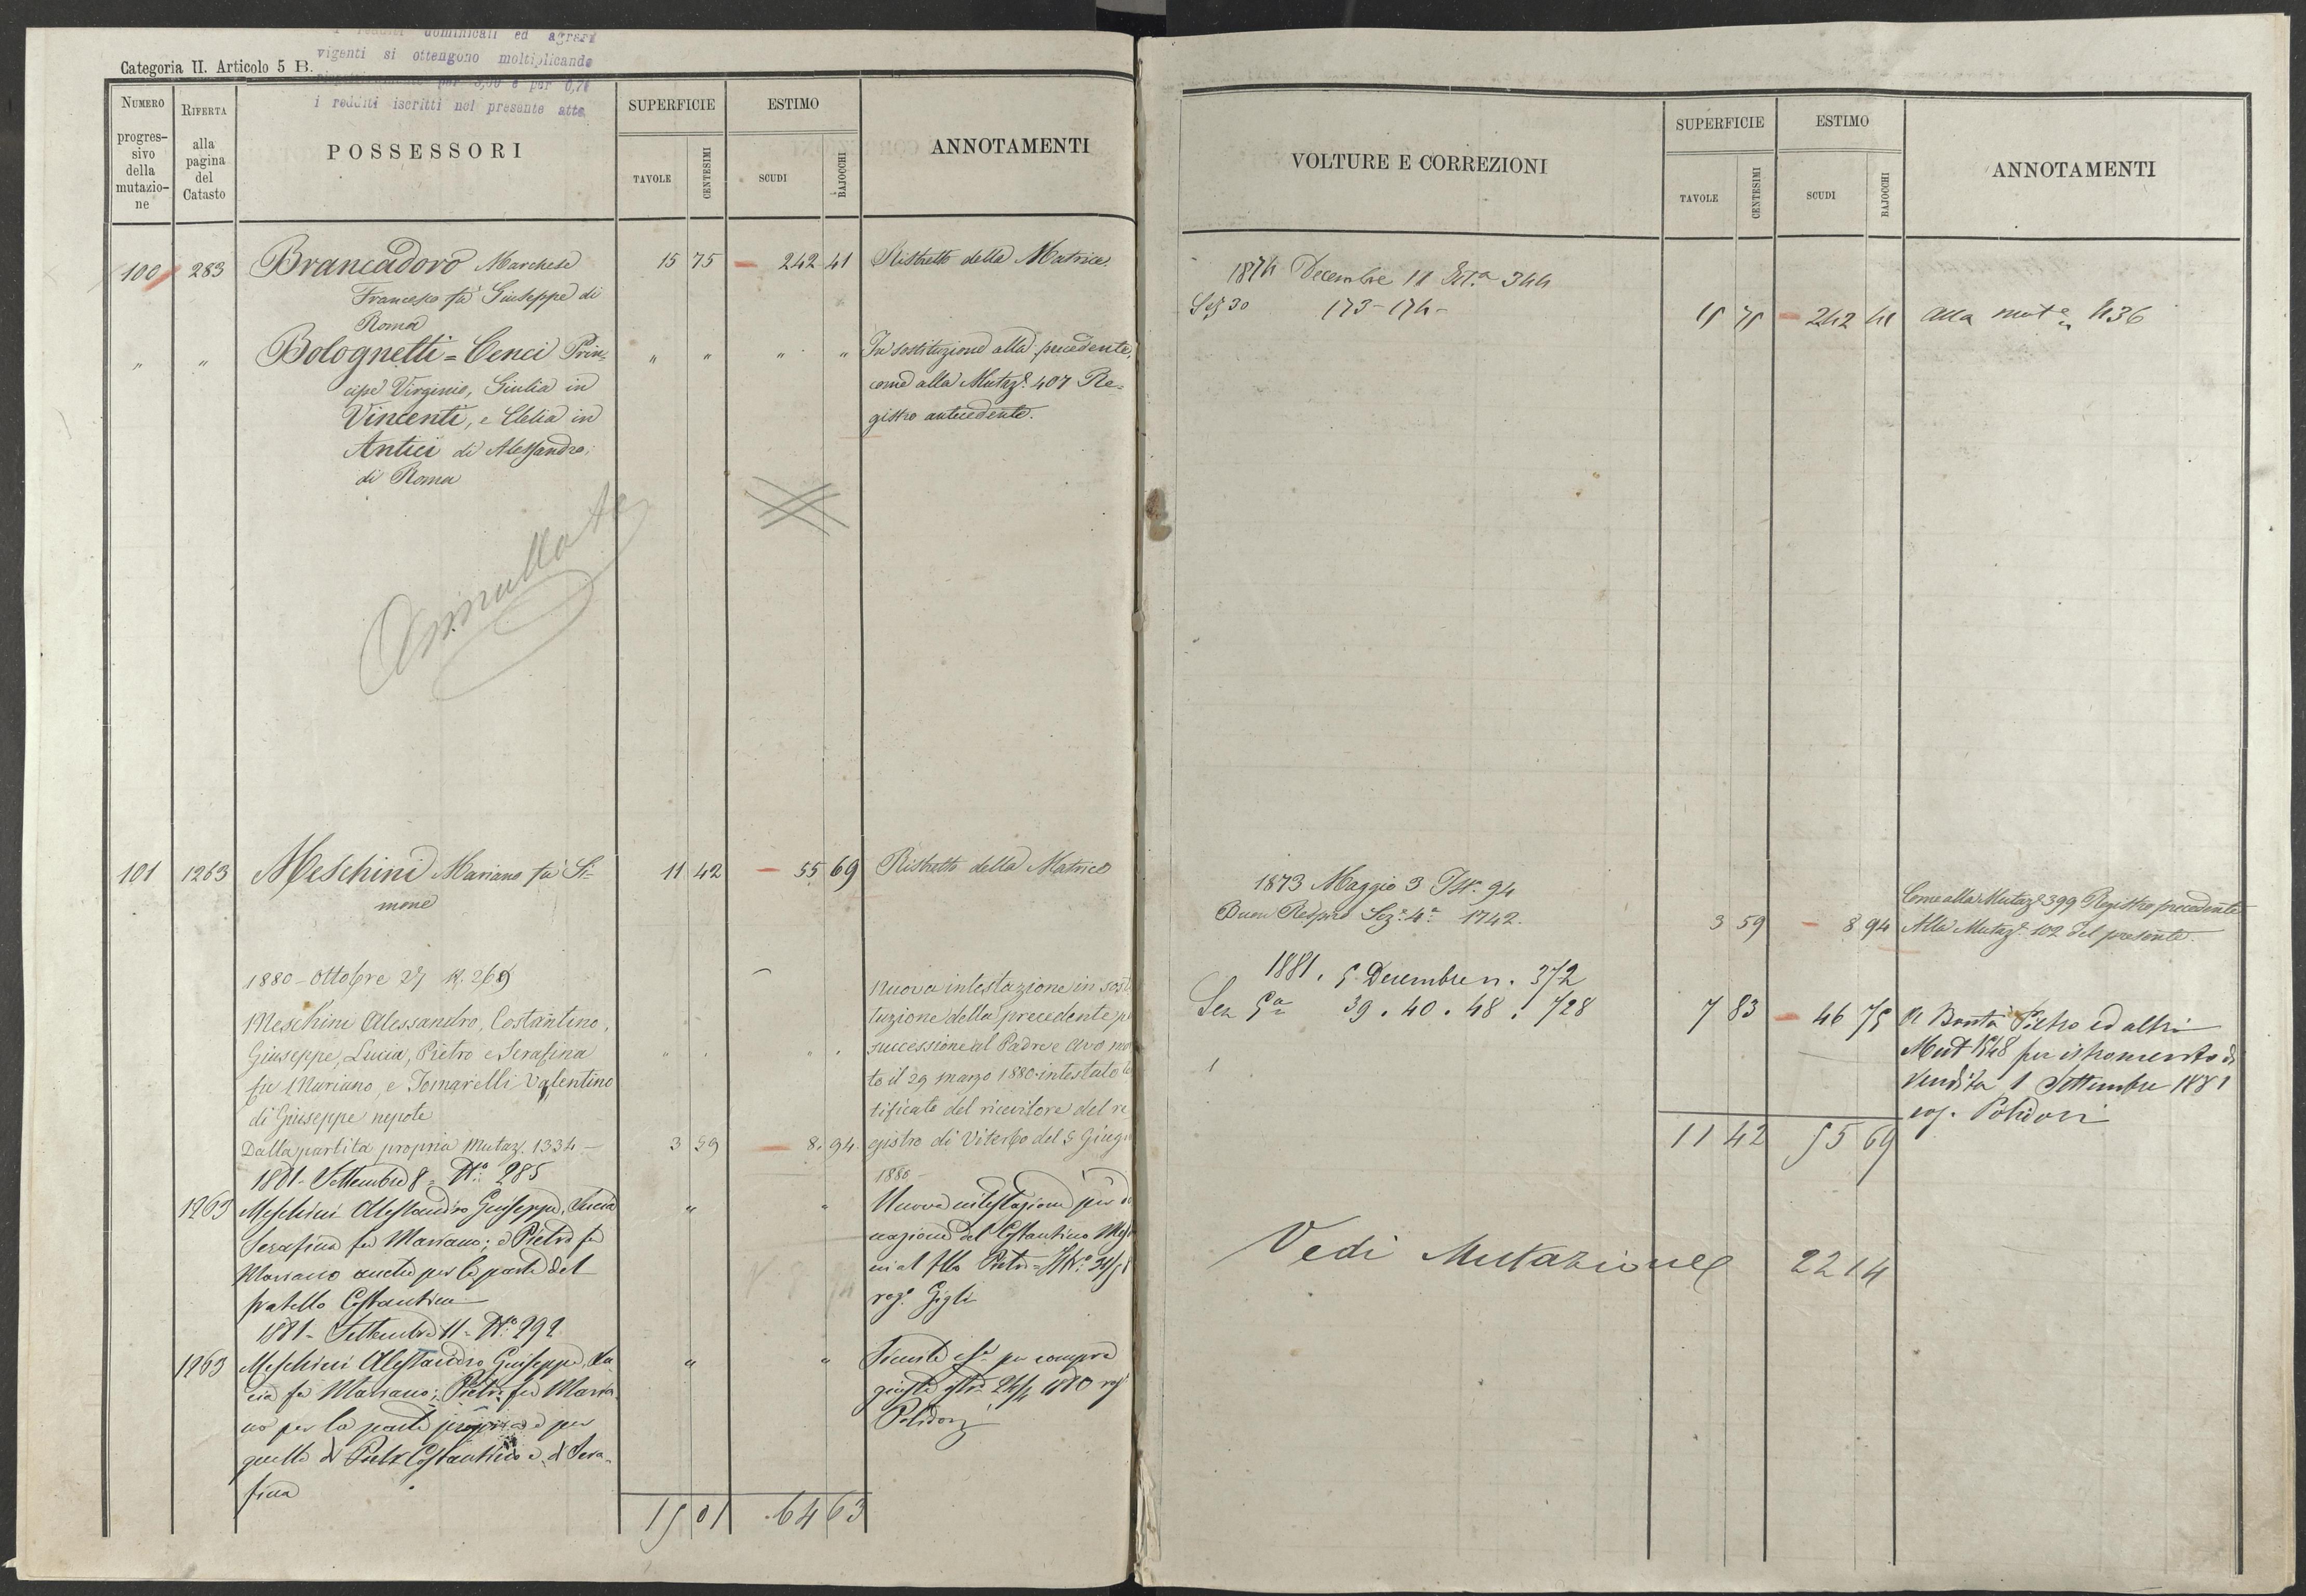 Categoria II. Articolo 5 B.
dominicali ed agrari
vigenti si ottengono moltiplicando
per e per 0,7
i redditi iscritti nel presente atto
NUMERO
progres-
sivo
della
mutazio-
ne
RIFERTA
alla
pagina
del
Catasto
POSSESSORI
SUPERFICIE
TAVOLE
CENTESIMI
ESTIMO
SCUDI
BAJOCCHI
ANNOTAMENTI
100 283 Brancadoro Marchese 15 75 - 242 41 Ristretto della Matrice.
Francesco fu Giuseppe di
Roma
" " Bolognetti=Cenci Prin= " " " " In sostituzione alla precedente,
cipe Virginio, Giulia in come alla Mutaz.e 407 Re=
Vincenti, e Clelia in gistro antecedente.
Antici di Alessandro;
di Roma
Annullata
101 1263 Meschini Mariano fu Si= 11 42 - 55 69 Ristretto della Matrice
mone
1880 - Ottobre 27 N. 269
Meschini Alessandro, Costantino,
Giuseppe, Lucia, Pietro e Serafina
fu Mariano, e Tomarelli Valentino
di Giuseppe nepote
Dalla partita propria Mutaz. 1334 - 3 59 - 8.94.
nuova intestazione in sost
tuzione della precedente p
successione al Padre e Avo mo
to il 29 marzo 1880 intestato
tificato del ricevitore del re
gistro di Viterbo del 5 Giug
1880
1881 - Settembre 8 = N.o 285
1263 Meschini Alessandro Giuseppe, Lucia " "
Serafina fu Mariano; e Pietro fu
Mariano anche per la parte del
fratello Costantino
Nuova intestazione per do
nazione del Costantino Mes
ni al f.llo Pietro =
rog.o Gigli
1881 - Settembre 11 = N.o 292
1263 Meschini Alessandro Giuseppe, Lu " "
cia fu Mariano; Pietro fu Maria
no per la parte propria e per
quella di Costantino e di Sera-
fina
per compra
1880 rog
Polidori
15 01 . 64 63
VOLTURE E CORREZIONI
SUPERFICIE
TAVOLE
CENTESIMI
ESTIMO
SCUDI
BAJOCCHI
ANNOTAMENTI
1874 Decembre 11 344
Sez 30 173 - 174 - 15 75 - 242 41 alla mut.e 436
1873 Maggio 3 Ist.a 94
Buon Respiro Sez.e 4.a 1742. 3 59 - 8 94
Come alla Mutaz.e 399 Registro precedente
Alla Mutaz.e 102 del presente.
1881. 5 Decembre n. 372
Sez 5a 39. 40. 48. 728 7 83 - 46 75
A Bontà Pietro ed altri
Mut 1548 per istromento di
vendita 1 Settembre 1881
rog. Polidori
11 42 55 69
Vedi Mutazione 2214